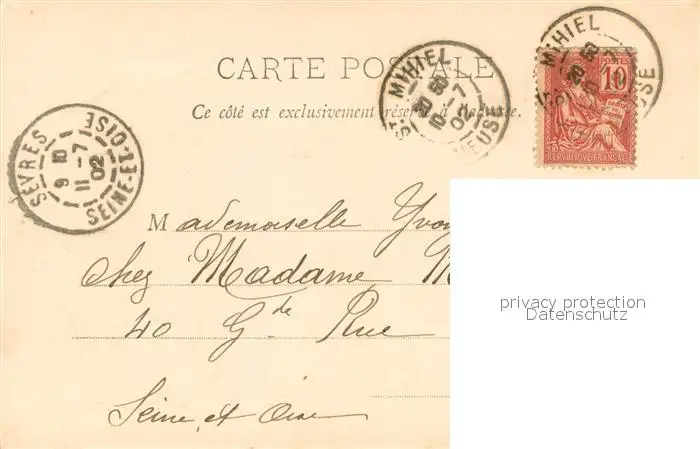 CARTE POSTALE
Ce côté est exclusivement réservé à l'adresse.
ST MIHIEL
20 60
10 -7
02
MEUSE
MIHIEL
20 60
USE
POSTES
10
REPUBLIQUE FRANÇAISE
SÈVRES
9 10
11 -7
02
SEINE-ET-OISE
Mademoiselle
chez Madame
40 Gde Rue
Seine, et Oise
privacy protection
Datenschutz